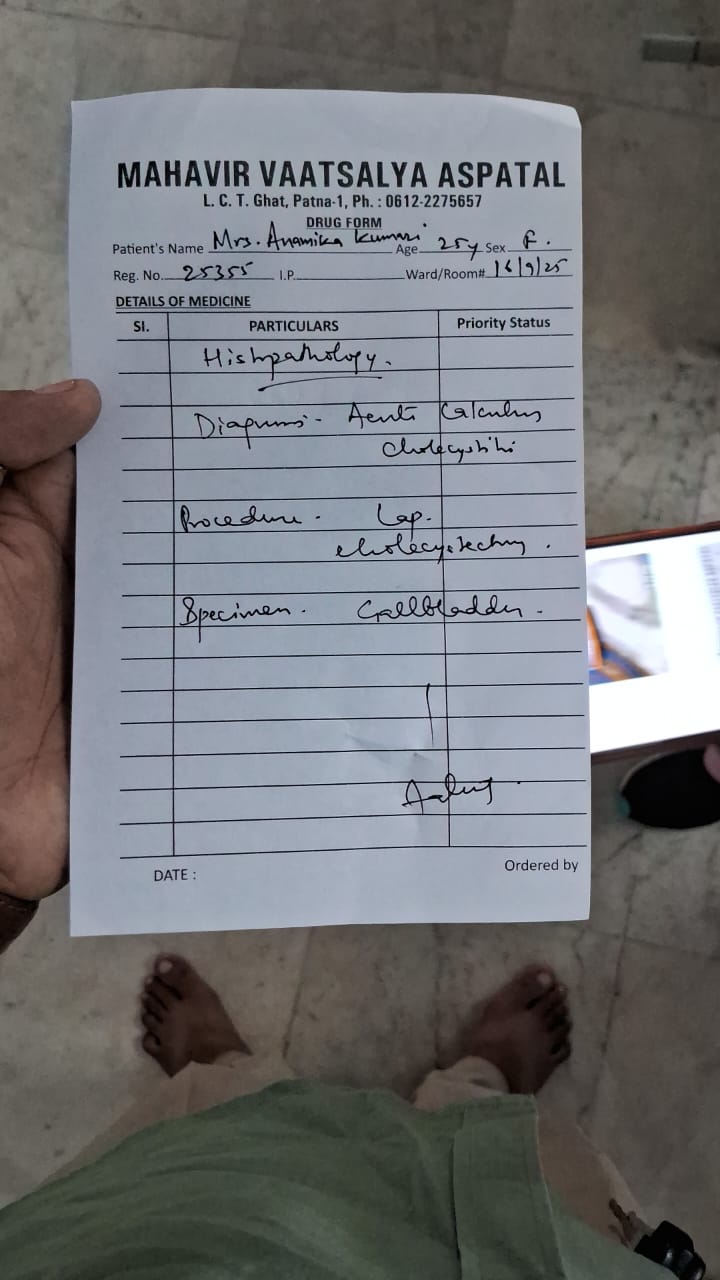 MAHAVIR VAATSALYA ASPATAL
L. C. T. Ghat, Patna-1, Ph. : 0612-2275657
DRUG FORM
Patient's Name Mrs. Anamika Kumari Age 25y Sex F.
Reg. No. 25355 I.P. Ward/Room# 16/9/25
DETAILS OF MEDICINE
SI. PARTICULARS Priority Status
Histopathology.
Diagnosis - Acute Calculus
cholecystitis
Procedure - Lap.
cholecystectomy.
Specimen - Gallbladder.
DATE :
Ordered by